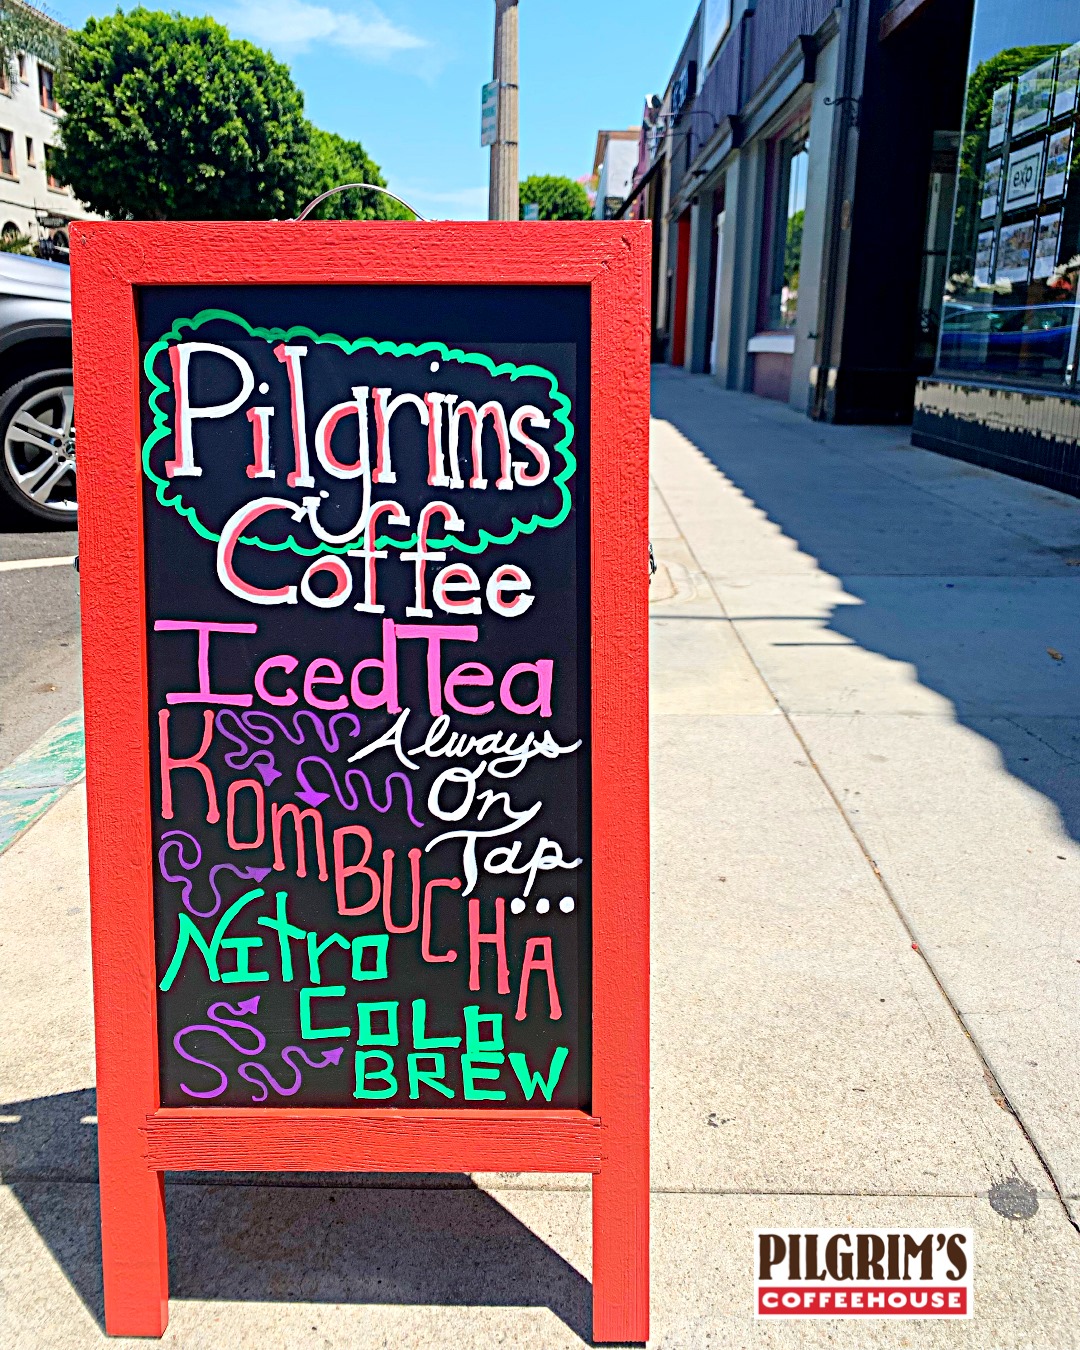 Pilgrims
Coffee
Iced Tea
Kombucha
Always
On
Tap...
Nitro
Cold
Brew
exp
PILGRIM'S
COFFEEHOUSE